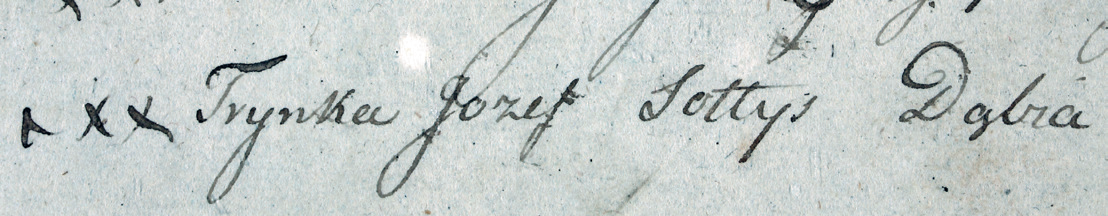 xxx Trynka Jozef Sołtys Dąbia